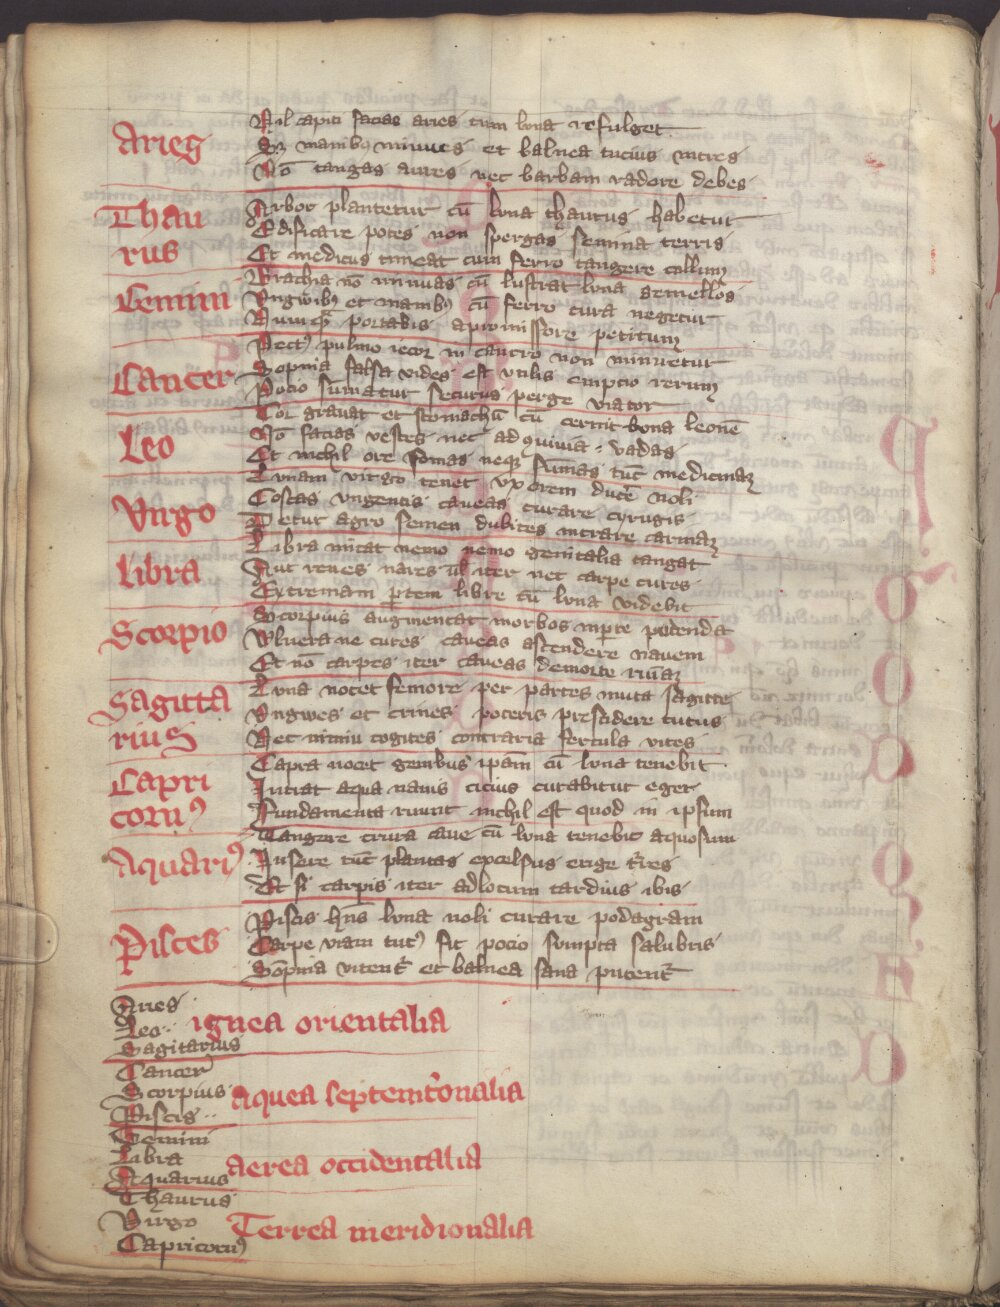 Aries
Nil capiti facias aries cum luna refulget
Sʒ manibꝰ minues et balnea tucius intres
Nō tangas aures nec barbam radere debes
Thau
rus
Arbor plantetur cū luna thaurus habetur
Edificare potes non spergas semina terris
Et medicus timeat cum ferro tangere collum
Gemini
Brachia nō minuas cū lustrat luna gemellos
Ungwibꝰ et manibꝰ cū ferro cura negetur
Nunqᷓ portabis a promissore petitum
Cancer
Pectꝰ pulmo iecor in cancro non minuetur
Sompnia falsa vides est utilis empcio rerum
Pocio sumatur securus perge viator
Leo
Cor gravat et stomachū cū cernit luna leonē
Nō facias vestes nec ad ꝯuiuia vadas
Et nichil ore vomas neqꝫ sumas tūc medicinaꝫ
Virgo
Lunam virgo tenet uxorem ducē noli
Costas ungentis caveas curare cyrugis
Detur agro semen dubites intrare carinaꝫ
Libra
Libra micat nemo nemo genitalia tangat
Aut renes nares ul iter nec carpe cures
Extremam ꝑtem libre cū luna videbit
Scorpio
Scorpius augmentat morbos in ꝑte pudenda
Vlnera ne cures caveas ascendere navem
Et nō carpes iter caveas de morte ruinaꝫ
Sagitta
rius
Luna nocet femore per partes mota sagitte
Ungwes et crines poteris prescidere tutus
Nec nimiū cogites contraria fercula vites
Capri
cornꝰ
Capra nocet genibus ipām cū luna tenebit
Intrat aqua navis cicius curabitur eger
Fundamenta ruunt nichil est quod in ipsum
Aquariꝰ
Tangere crura cave cū luna tenebit aquosum
Insere tūc plantas excelsus erige t᷑res
Et si carpis iter ad locum tardius ibis
Pisces
Piscis hn̄s luna noli curare podagram
Carpe viam tutꝰ sit pocio sompta salubris
Sōpnia vitent᷑ et balnea sana putent᷑
Aries
Leo
Sagitarius
ignea orientalia
Cancer
Scorpius
Piscis
aquea septemt᷑onalia
Gemini
Libra
Aquarius
aerea occidentalia
Thaurus
Virgo
Capricornꝰ
Terrea meridionalia